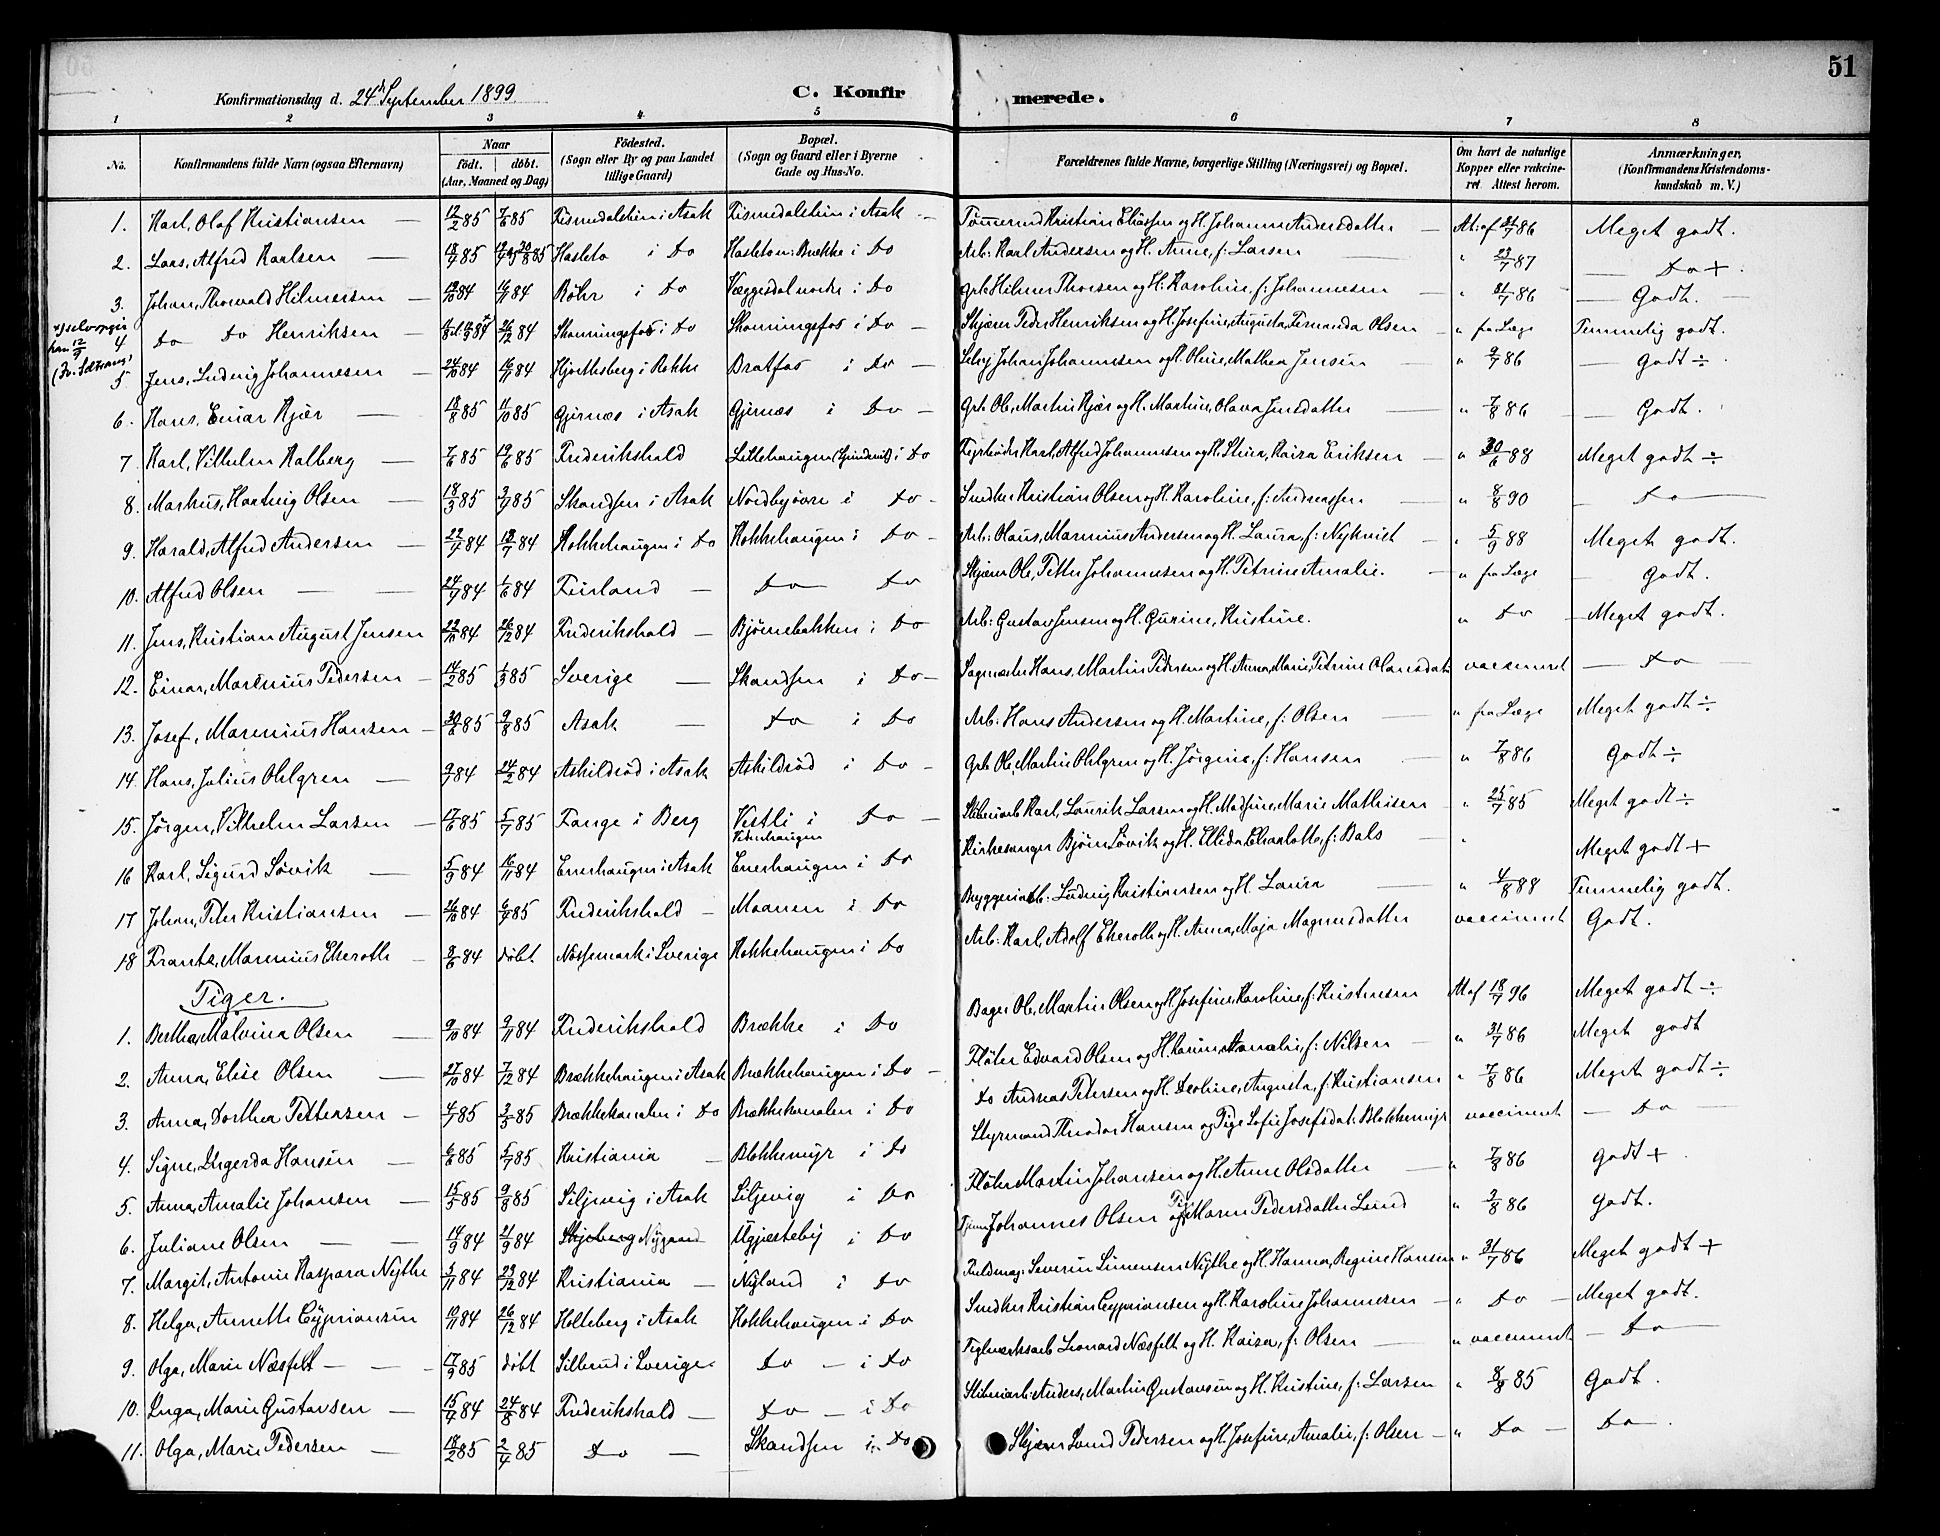 51
Konfirmationsdag d. 24d September 1899.
C. Konfirmerede.
1 2 3 4 5 6 7 8
No. Konfirmandens fulde Navn (ogsaa Efternavn) Naar födt. döbt. (Aar, Maaned og Dag) Födested. (Sogn eller By og paa Landet tillige Gaard) Bopæl. (Sogn og Gaard eller i Byerne Gade og Hus-No. Forældrenes fulde Navne, borgerlige Stilling (Næringsvei) og Bopæl. Om havt de naturlige Kopper eller vakcineret. Attest herom. Anmærkninger, (Konfirmandens Kristendomskundskab m. V.)
1. Karl, Olaf Kristiansen — 12/2 85 7/6 85 i Asak i Asak Kristian Eliassen og H. Johanne Andersdatter — At: af 31/7 86 Meget godt.
2. Lars, Alfred Karlsen — 18/7 85 30/8 85 Hasleto i Do Hasleto Brække i Do Arb: Karl Andersen og H. Anne, f: Larsen — " 23/7 87 — Do +.
3. Johan, Thorvald Hilmersen — 84 16/11 84 Röhr i Do Væggesdal nordre i Do Grb Hilmer Thorsen og H. Karoline, f: Johannesen — " 31/7 86 — Godt. —
4 Do Do Henriksen — 84 26/12 84 Skonningsfos i Do Skonningsfos i Do — Skjærer Peder Henriksen og H. Josefine, Augusta, Fernanda Olsen — " fra Læge Temmelig godt.
5 Jens, Ludvig Johannesen — 24/10 84 16/11 84 Hjorthsberg i Rokke Bratfos i Do — Selvej Johan Johannesen og H. Oline, Mathea Jensen " 9/7 86 — Godt ÷
6. Hans, Einar Kjær — 18/8 85 11/10 85 Gjernæs i Asak Gjernæs i Do — Grb Ole, Martin Kjær og H. Martine, Olava Jensdatter " 7/8 86 — Godt.
7. Karl, Vilhelm Kalberg — 7/6 85 19/6 85 Frederikshald Lillehaugen i Do Fyrböder Karl, Alfred Johannesen og H. Stina, Kaisa Eriksen — " 30/6 88 Meget godt ÷
8. Markus, Hartvig Olsen — 18/3 85 3/7 85 Skandsen i Asak Nordbyövre i Do — Snedker Kristian Olsen og H. Karoline, f: Andreassen " 8/8 90 — Do —
9. Harald, Alfred Andersen — 22/4 84 13/7 84 Kokkehaugen i Do Kokkehaugen i Do — Arb: Olaus, Marinius Andersen og H. Laura, f: Nykvist — " 5/9 88 Meget godt.
10. Alfred Olsen — — 24/4 84 1/6 84 — Do Do Skjærer Ole, Petter Johannesen og H. Petrine Amalie. — " fra Læge — Godt.
11. Jens, Kristian August Jensen 22/11 84 26/12 84 Frederikshald — Björnebakken i Do Arb: Gustav Jensen og H. Gurine, Kristine. " Do — Meget godt.
12. Einar, Marenius Pedersen — 14/2 85 1/3 85 Sverige — Skandsen i Do — Sagmester Hans, Martin Pedersen og H. Anna, Marie, Petrine Olausdat: vaccineret — Do
13. Josef, Marenius Hansen — 30/6 85 9/8 85 Asak — Do i Do Arb: Hans Andersen og H. Martine, f: Olsen — " fra Læge Meget godt ÷
14. Hans, Julius Ohlgren — 9/1 84 24/2 84 Askildröd i Asak Askildröd i Do — Grb Ole, Martin Ohlgren og H. Jörgine, f: Hansen " 7/8 86 Godt ÷
15. Jörgen, Vilhelm Larsen — 17/6 85 5/7 85 Tange i Berg Vestli i Do — Stenarb Karl, Laurik Larsen og H. Mathine, Marie Mathisen — " 25/7 85 Meget godt ÷
16 Karl, Sigurd Lövik — 5/9 84 16/11 84 Enerhaugen i Asak Enerhaugen i Do Kirkesanger Björn Lövik og H. Ellida Charlotte, f: Bals — " Meget godt +
17 Johan, Peter Kristiansen — 26/10 84 6/4 85 Frederikshald — Maanen i Do Bryggeriarb: Ludvig Kristiansen og H. Laura — " 4/8 88 Temmelig godt.
18 Frantz, Marenius Ekeroth — 8/6 84 döbt Nössemark i Sverige Kokkehaugen i Do Arb: Karl, Adolf Ekeroth og H. Anna, Maja Magnusdatter vaccineret Godt.
Piger.
1. Bertha, Malvina Olsen — 9/10 84 9/11 84 Frederikshald Brække i Do Bager Ole, Martin Olsen og H. Josefine, Karoline, f: Kristensen At af 18/7 96 Meget godt ÷
2. Anna, Elise Olsen — 27/10 84 7/12 84 Brækkehaugen i Asak Brækkehaugen i Do — Flöter Edvard Olsen og H. Amalie, f: Nilsen — " 31/7 86 Meget godt
3. Anna, Dorthea Pettersen — 4/1 85 3/5 85 Brækkekanalen i Do Brækkekanalen i Do Do Andreas Petersen og H. Augusta, f: Kristiansen " 7/8 86 Meget godt ÷
4. Signe, Ingerda Hansen — 6/6 85 5/7 85 Kristiania — Blokkemyr i Do Styrmand Theodor Hansen og Pige Sofie Josefsdat: Blokkemyr vaccineret — Do —
5. Anna, Amalie Johansen — 15/5 85 9/8 85 Siljevig i Asak Siljevig i Do Flöter Martin Johansen og H. Anne Olsdatter — " 7/8 86 Godt +
6. Juliane Olsen — — 14/9 84 21/9 84 Skjeberg Nygaard Ugjesteby i Do Johannes Olsen og Pige Maren Pedersdatter Lund " 3/8 86 Godt.
7. Margit, Antonie Kaspara Nythe 3/11 84 23/12 84 Kristiania — Nyland i Do Severin Simensen Nythe og H. Hanna, Regine Hansen " 31/7 86 Meget godt +
8. Helga, Annette Cypriansen 10/11 84 26/12 84 Holteberg i Asak Kokkehaugen i Do Snedker Kristian Cypriansen og H. Karoline Johannesen — " Do — Meget godt.
9. Olga, Marie Næsfelt — — 17/9 85 döbt Sillerud i Sverige Do — i Do Teglværksarb Leonard Næsfelt og H. Kaisa, f: Olsen — " vaccineret — Do —
10. Inga, Marie Gustavsen — 15/7 84 24/8 84 Frederikshald — Do — i Do Stenarb: Anders, Martin Gustavsen og H. Kristine, f: Larsen " 8/8 85 Godt.
11. Olga, Marie Pedersen — 18/2 85 2/4 85 Do — Skandsen i Do Skjærer Lund Pedersen og H. Josefine, Amalie, f: Olsen — " Do — Do.